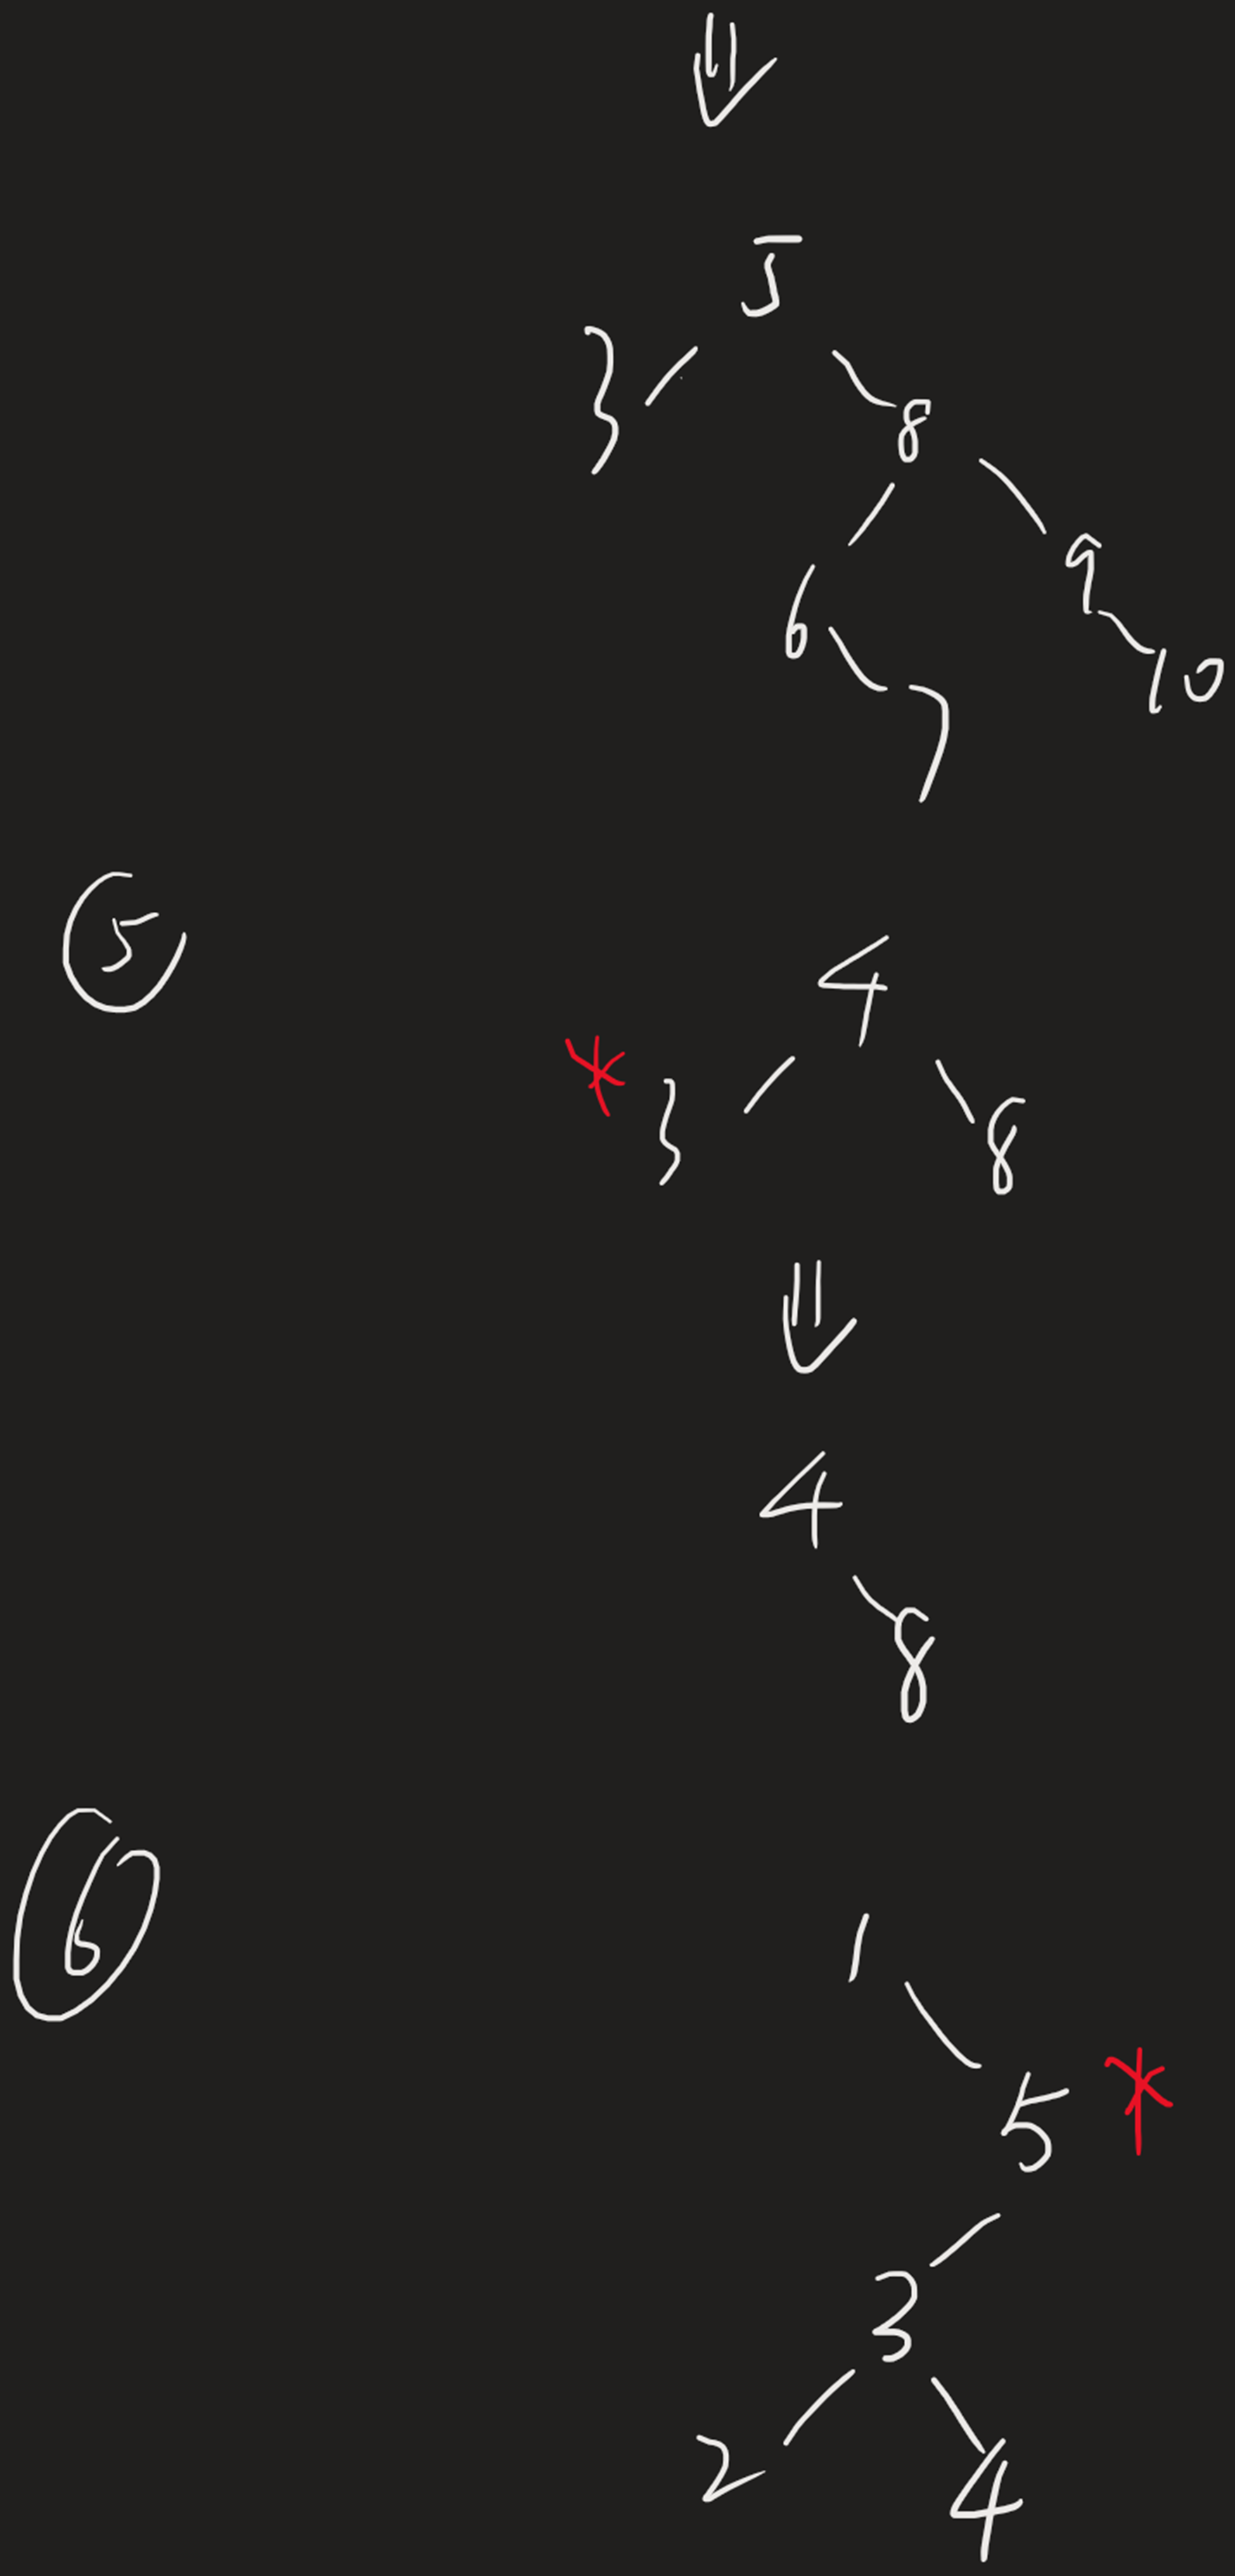 5
3 8
6 9
7 10
⑤
4
* 3 8
4
8
⑥
1
5 *
3
2 4